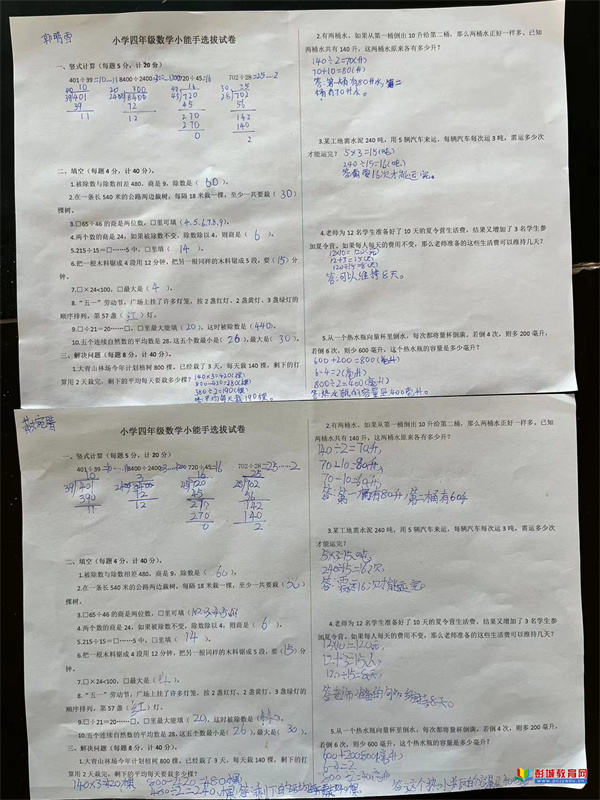 郭晴雪
小学四年级数学小能手选拔试卷
一、竖式计算(每题5分,计20分)
401÷39=10…11 8400÷2400=3…1200 720÷45=16 702÷28=25…2
二、填空(每题4分,计40分)。
1.被除数与除数相差480,商是9,除数是( 60 )。
2.在一条长540米的公路两边栽树,每隔18米栽一棵,至少一共要栽( 30 )
棵树。
3.□65÷46的商是两位数,□里可填(4、5、6、7、8、9)。
4.两个数的商是24,如果被除数不变,除数除以4,则商是( 6 )。
5.215÷15=□……5中,□里填( 14 )。
6.把一根木料锯成4段用12分钟,把另一根同样的木料锯成5段,要(15)分
钟。
7.□×24<100,□最大是( 4 )。
8.“五一”劳动节,广场上挂了许多灯笼,按2盏红灯、2盏黄灯、3盏绿灯的
顺序排列,第57盏(红)灯。
9.□÷21=20……□,□里最大能填(20),这时被除数是(440)。
10.五个连续自然数的平均数是28,这五个数最小是( 26 ),最大是( 30 )。
三、解决问题(每题8分,计40分)。
1.大青山林场今年计划植树800棵,已经栽了3天,每天栽140棵,剩下的打
算用2天栽完,剩下的平均每天要栽多少棵?
140×3=420(棵)
2.有两桶水,如果从第一桶倒出10升给第二桶,那么两桶水正好一样多,已知
两桶水共有140升,这两桶水原来各有多少升?
140÷2=70(升)
70+10=80(升)
答:第一桶有80升水,第二
桶有70升水。
3.某工地需水泥240吨,用5辆汽车来运,每辆汽车每次运3吨,需运多少次
才能运完?
5×3=15(吨)
240÷15=16(次)
答:需要16次才能运完。
4.老师为12名学生准备好了10天的夏令营生活费,结果又增加了3名学生参
加夏令营。如果每人每天的费用不变,那么老师准备的这些生活费可以维持几天?
12×10=120(元)
12+3=15(人)
120÷15=8(天)
答:可以维持8天。
5.从一个热水瓶向量杯里倒水,每次都将量杯倒满。若倒4次,则多200毫升,
若倒6次,则少600毫升,这个热水瓶的容量是多少毫升?
600+200=800(毫升)
6-4=2(毫升)
800÷2=400(毫升)
答:热水瓶的容量是400毫升。
小学四年级数学小能手选拔试卷
一、竖式计算(每题5分,计20分)
401÷39= 8400÷2400= 720÷45=16 702÷28=25……2
二、填空(每题4分,计40分)。
1.被除数与除数相差480,商是9,除数是( 60 )。
2.在一条长540米的公路两边栽树,每隔18米栽一棵,至少一共要栽(30)
棵树。
3.□65÷46的商是两位数,□里可填
4.两个数的商是24,如果被除数不变,除数除以4,则商是( 6 )。
5.215÷15=□……5中,□里填( 14 )。
6.把一根木料锯成4段用12分钟,把另一根同样的木料锯成5段,要(15)分
钟。
7.□×24<100,□最大是
8.“五一”劳动节,广场上挂了许多灯笼,按2盏红灯、2盏黄灯、3盏绿灯的
顺序排列,第57盏(红)灯。
9.□÷21=20……□,□里最大能填(20),这时被除数是
10.五个连续自然数的平均数是28,这五个数最小是( 26 ),最大是( 30 )。
三、解决问题(每题8分,计40分)。
1.大青山林场今年计划植树800棵,已经栽了3天,每天栽140棵,剩下的打
算用2天栽完,剩下的平均每天要栽多少棵?
2.有两桶水,如果从第一桶倒出10升给第二桶,那么两桶水正好一样多,已知
两桶水共有140升,这两桶水原来各有多少升?
140÷2=70升,
70+10=80升,
70-10=60升,
答:第一桶有80升,第二桶有60升
3.某工地需水泥240吨,用5辆汽车来运,每辆汽车每次运3吨,需运多少次
才能运完?
5×3=15吨,
240÷15=16次
答:需要16次才能运完
4.老师为12名学生准备好了10天的夏令营生活费,结果又增加了3名学生参
加夏令营。如果每人每天的费用不变,那么老师准备的这些生活费可以维持几天?
5.从一个热水瓶向量杯里倒水,每次都将量杯倒满。若倒4次,则多200毫升,
若倒6次,则少600毫升,这个热水瓶的容量是多少毫升?
6-4=2
彭城教育网